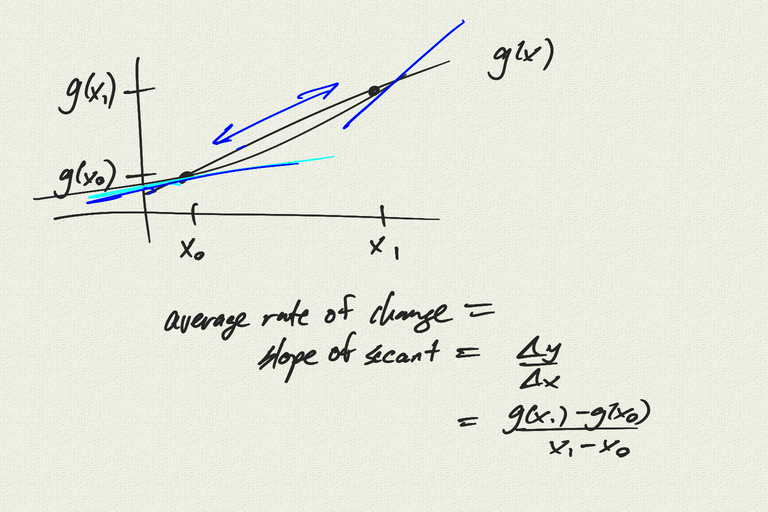 g(x)
g(x₁)
g(x₀)
x₀
x₁
average rate of change =
slope of secant = Δy/Δx
= g(x₁) - g(x₀)/x₁ - x₀